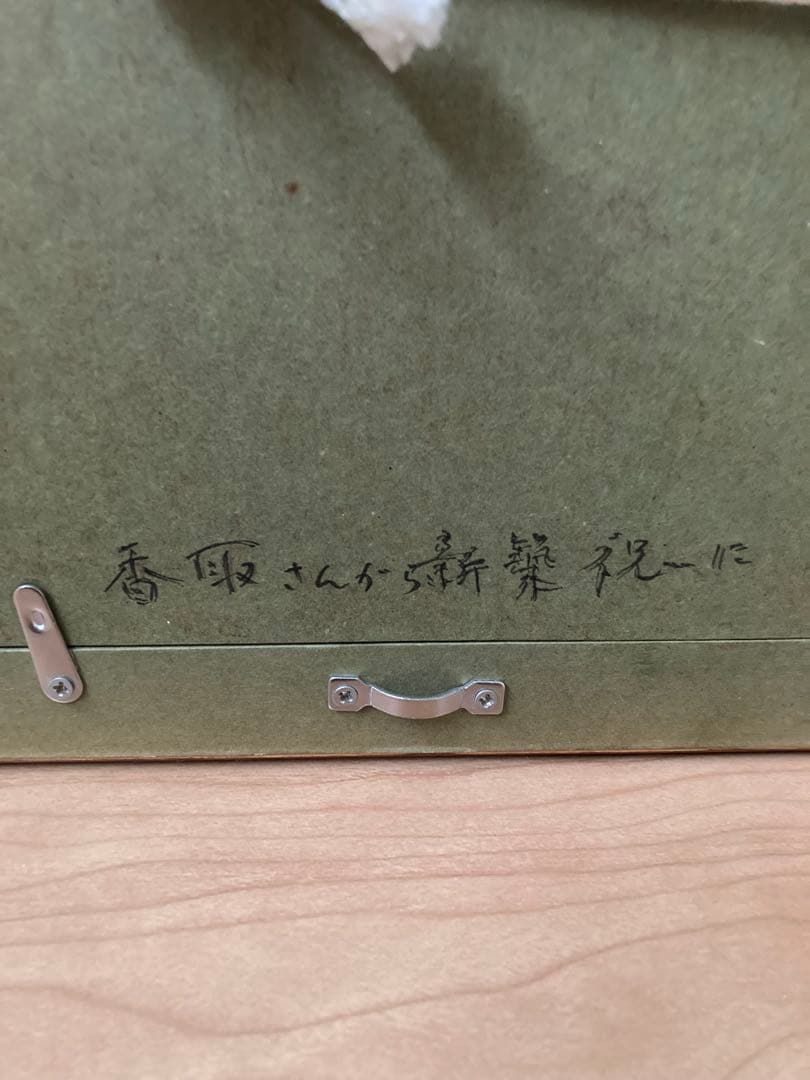 香取さんから新築祝いに